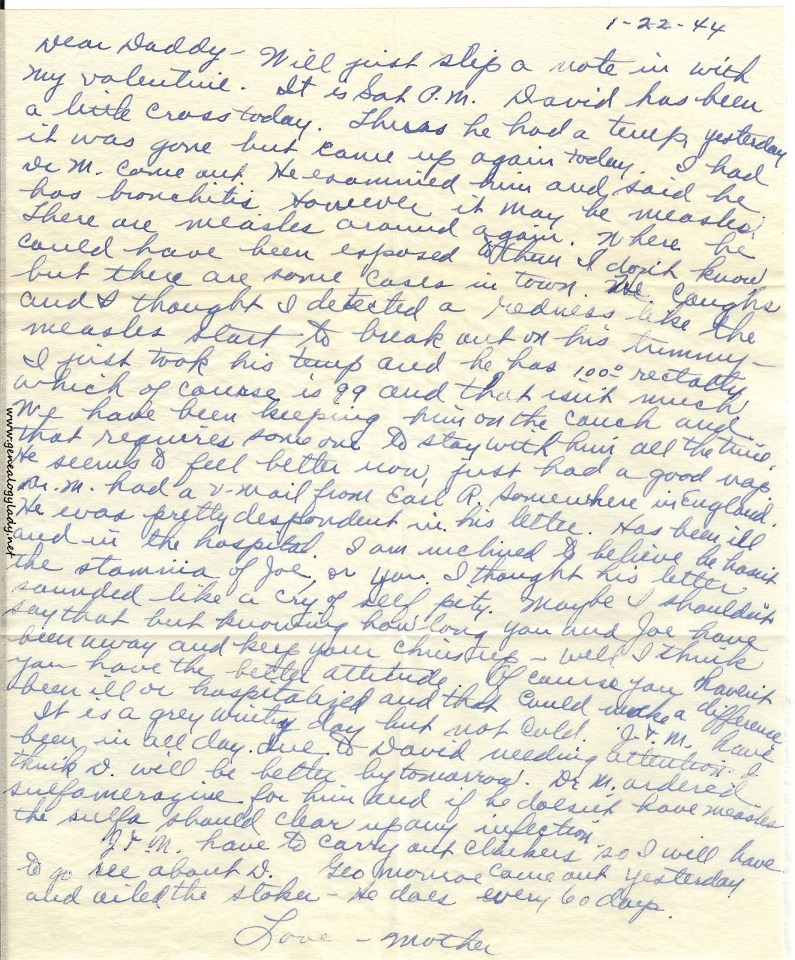 1-22-44
Dear Daddy - Will just slip a note in with
my valentine. It is Sat P.M. David has been
a little cross today. Thurs he had a temp, yesterday
it was gone but came up again today. I had
Dr M. come out. He examined him and said he
has bronchitis. However it may be measles.
There are measles around again. Where he
could have been exposed to them I don't know
but there are some cases in town. He coughs
and I thought I detected a redness like the
measles start to break out on his tummy -
I just took his temp and he has 100° rectally
which of course is 99 and that isn't much.
We have been keeping him on the couch and
that requires someone to stay with him all the time.
He seems to feel better now, just had a good nap.
Mr. M. had a V-mail from Earl R. somewhere in England.
He was pretty despondent in his letter. Has been ill
and in the hospital. I am inclined to believe he hasn't
the stamnia of Joe, or you. I thought his letter
sounded like a cry of self pity. Maybe I shouldn't
say that but knowing how long you and Joe have
been away and keep your chins up - well I think
you have the better attitude. Of course you haven't
been ill or hospitalized and that could make a difference.
It is a grey wintry day but not cold. J & M. have
been in all day due to David needing attention. I
think D. will be better by tomorrow. Dr M. ordered
sulfamerazine for him and if he doesn't have measles
the sulfa should clear up any infection.
J & M. have to carry out clinkers so I will have
to go see about D. Geo Monroe came out yesterday
and oiled the stoker - He does every 60 days.
Love - Mother
www.genealogylady.net